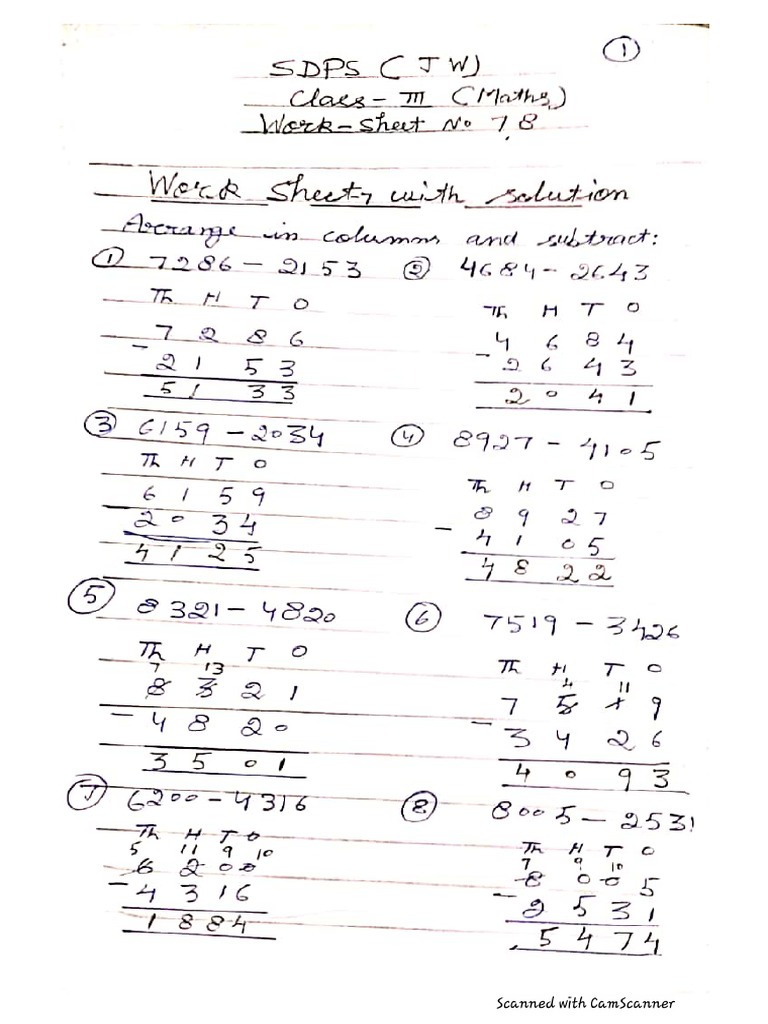 ①
SDPS (JW)
Class - III (Maths)
Work-Sheet No 7,8
Work Sheet, with solution
Arrange in columns and subtract:
① 7286 - 2153 ② 4684 - 2643
Th H T O
7 2 8 6
- 2 1 5 3
5 1 3 3
Th H T O
4 6 8 4
- 2 6 4 3
2 0 4 1
③ 6159 - 2034 ④ 8927 - 4105
Th H T O
6 1 5 9
2 0 3 4
4 1 2 5
Th H T O
8 9 2 7
- 4 1 0 5
4 8 2 2
⑤ 8321 - 4820 ⑥ 7519 - 3426
Th H T O
7 13
8 3 2 1
- 4 8 2 0
3 5 0 1
Th H T O
4 11
7 5 1 9
- 3 4 2 6
4 0 9 3
⑦ 6200 - 4316 ⑧ 8005 - 2531
Th H T O
5 11 9 10
6 2 0 0
- 4 3 1 6
1 8 8 4
Th H T O
7 9 10
8 0 0 5
- 2 5 3 1
5 4 7 4
Scanned with CamScanner